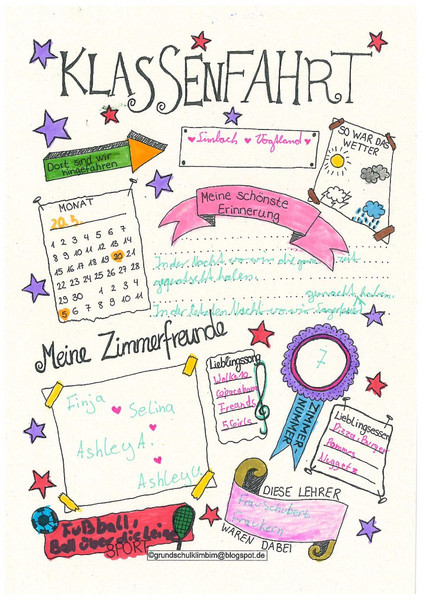 KLASSENFAHRT
Dort sind wir
hingefahren
♥ Limbach ♥ Vogtland ♥
SO WAR DAS
WETTER
MONAT
20.5.
1 2 3 4 5 6 7
8 9 10 11 12 13 14
15 16 17 18 19 20 21
22 23 24 25 26 27 28
29 30 1 2 3 4
5 6 7 8 9 10 11
Meine schönste
Erinnerung
In der Nacht wo wir die
gequatscht haben.
gemacht haben.
In der letzten Nacht wo wir
Meine Zimmerfreunde
Finja
Selina
Ashley A.
Ashley U.
Lieblingssong
Freaks
5 Girls
7
ZIMMER-
NUMMER
Lieblingsessen
Pizza, Burger
Pommes
Nuggets
DIESE LEHRER
Frau Schubert
Frau Kern
WAREN DABEI
Fußball,
Ball über die Leine
SPORT
©grundschulklimbim@blogspot.de